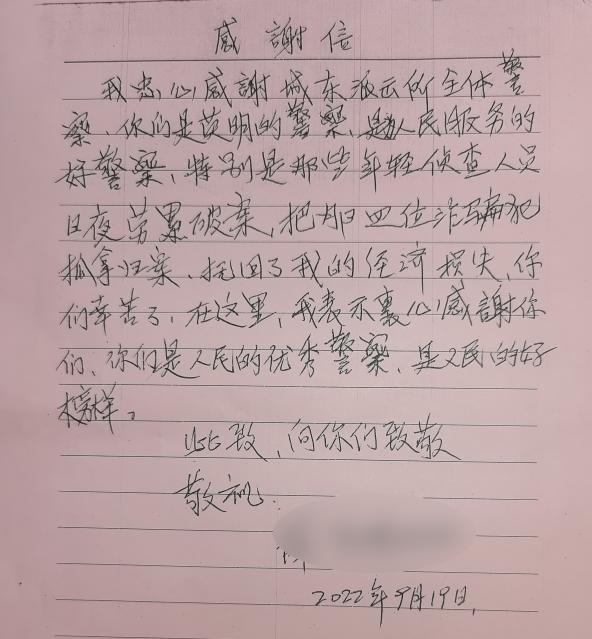 感謝信
我忠心感謝城东派出所全体警
察、你们是英明的警察,是为人民服务的
好警察、特别是那些年轻侦查人员
日夜劳累破案,把四位诈骗犯
抓拿归案、挽回了我的经济损失、你
们幸苦了、在这里、我表示衷心感謝你
们、你们是人民的优秀警察、是人民的好
榜样。
此致、向你们致敬
敬礼
2022年9月19日,